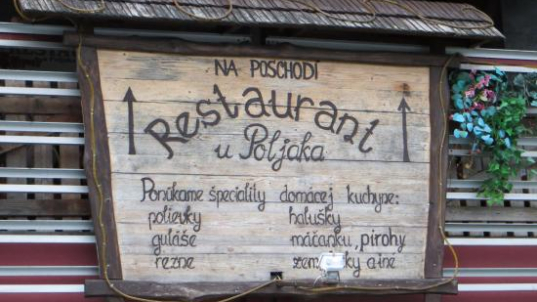 NA POSCHODÍ
Restaurant
u Poljaka
Ponúkame špeciality domácej kuchyne:
polievky halušky
guláše máčanku, pirohy
rezne a iné